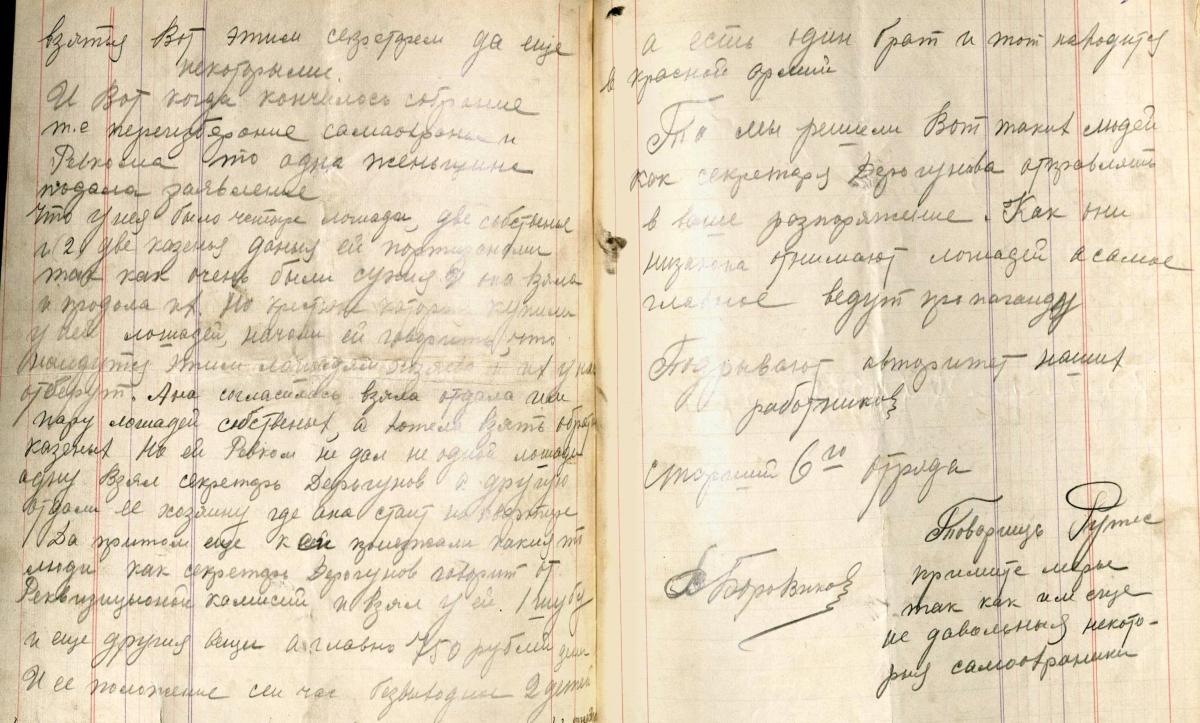 взятия Вот этим секретарем да еще
некоторыми.
И Вот когда кончилось собрание
т.е переизберание самаохраны и
Ревкома то одна женьщина
подала заявление
что у нея было четыре лошади, две собственые
и 2 две казеныя даныя ей партизанами
так как очень были худия и она взяла
и продала их. Но крестьяне которые купили
у ней лошадей, начали ей говорить, что
этим лошадям и их у них
отберут. Ана согласилась взяла отдала им
пару лошадей собственых, а хотела взять обратно
казеных Но ей Ревком не дал не одной лошади
одну Взял секретарь Дерюгунов а другую
отдали ее хозяину где ана стаит на квартире
Да притом еще к ей приезжали какия то
люди как секретарь Дерюгунов говорит от
Реквизиционой камисии и взял у ей. 1 шубу
и еще другия вещи а главно 750 рублей
И ее положение сей час безвыходное 2 детей
а есть один брат и тот находится
в красной армии
То мы решили Вот таких людей
как секретаря Дерюгунова отправлять
в ваше разпоряжение. Как они
низаконно отнимают лошадей а самое
главное ведут пропаганду
Подрывают авторитет наших
работников
старший 6го отряда
Боровиков
Товарищь
примите меры
так как им еще
не давольныя некото-
рыя самоохраники